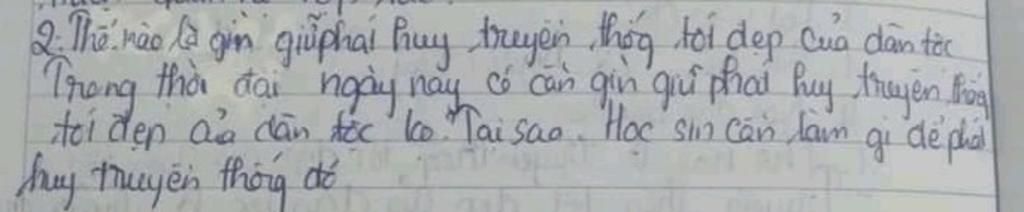 2. Thế nào là gìn giữ phát huy truyền thống tốt đẹp của dân tộc
Trong thời đại ngày nay có cần gìn giữ phát huy truyền thống
tốt đẹp của dân tộc ko. Tại sao. Học sin cần làm gì để phát
huy truyền thống đó